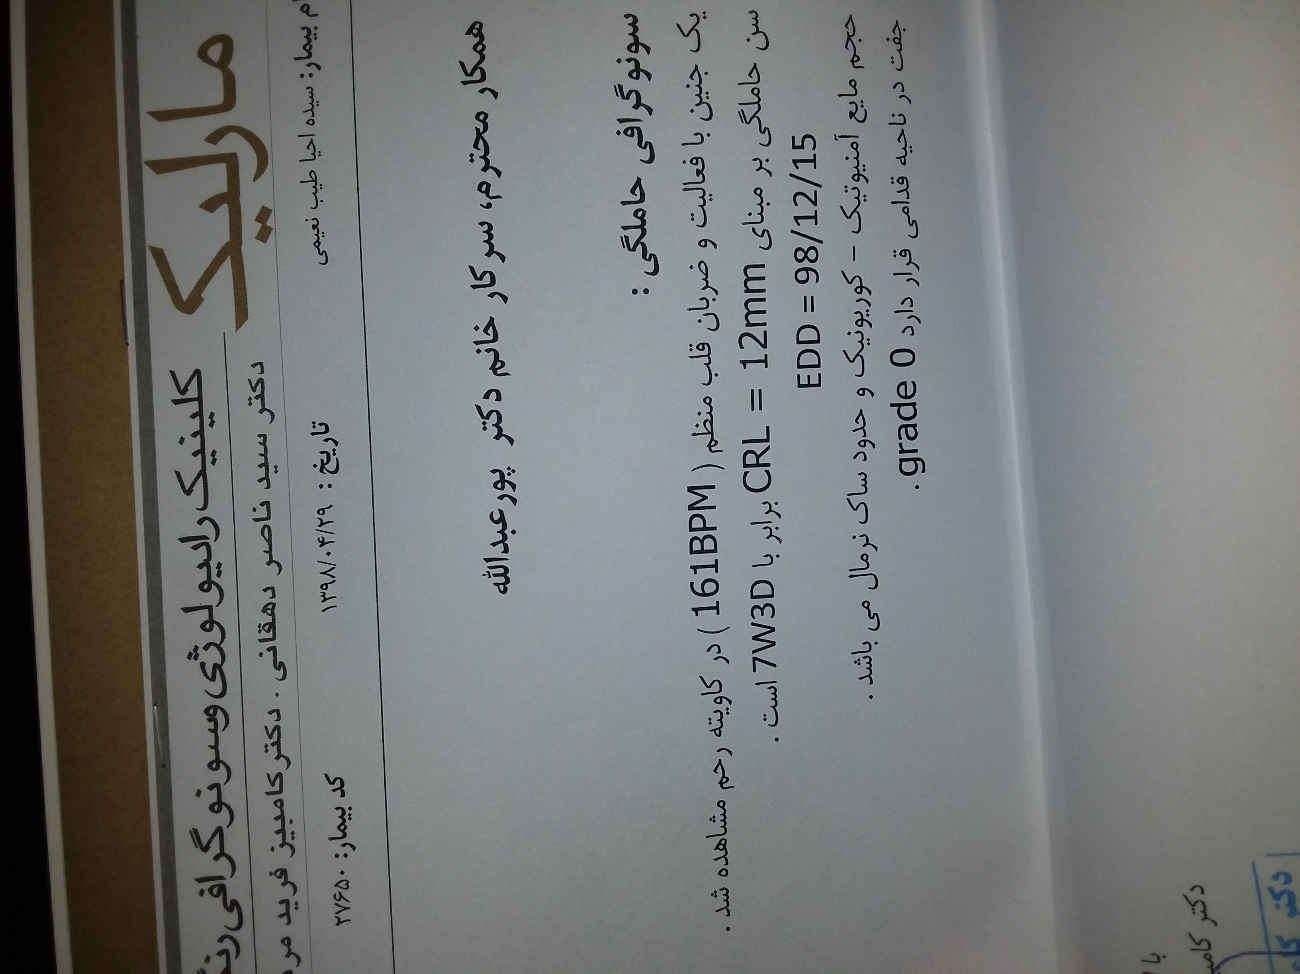 مارلیک
کلینیک رادیولوژی وسونوگرافی
دکتر سید ناصر دهقانی . دکتر کامبیز فرید
بیمار: سیده احیا طیب نعیمی تاریخ : ۱۳۹۸/۰۴/۲۹ کد بیمار: ۲۷۶۵۰
همکار محترم، سرکار خانم دکتر پورعبدالله
سونوگرافی حاملگی :
یک جنین با فعالیت و ضربان قلب منظم ( 161BPM ) در کاویته رحم مشاهده شد .
سن حاملگی بر مبنای CRL = 12mm برابر با 7W3D است .
EDD = 98/12/15
حجم مایع آمنیوتیک - کوریونیک و حدود ساک نرمال می باشد .
جفت در ناحیه قدامی قرار دارد grade 0 .
با
دکتر
دکتر